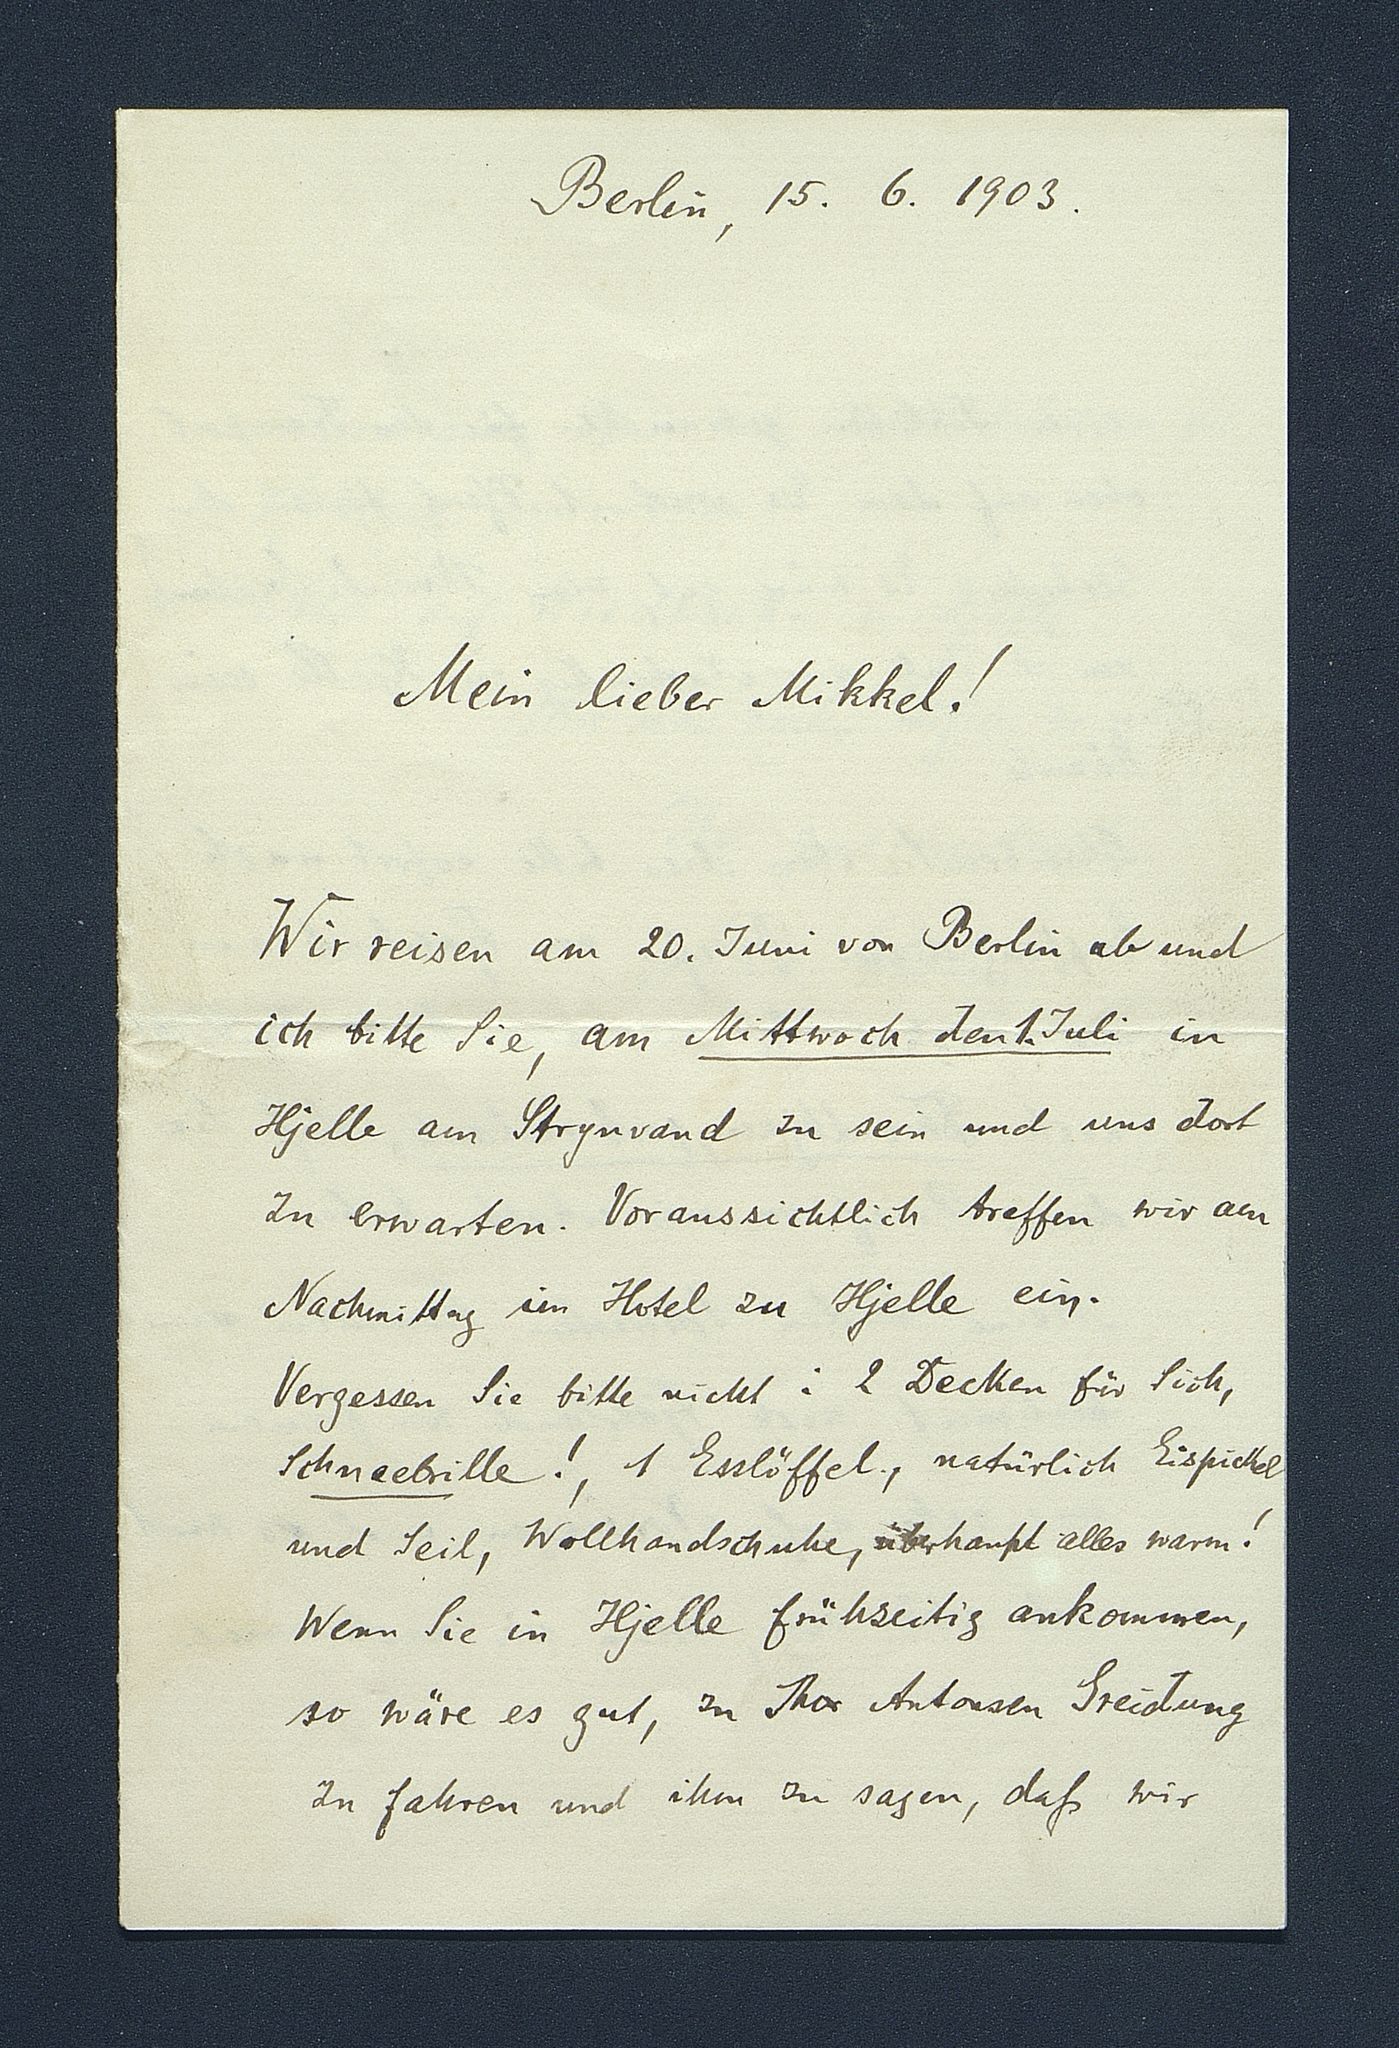 Berlin, 15. 6. 1903.
Mein lieber Mikkel!
Wir reisen am 20. Juni von Berlin ab und
ich bitte Sie, am Mittwoch den 1. Juli in
Hjelle am Strynvand zu sein und uns dort
zu erwarten. Voraussichtlich treffen wir am
Nachmittag im Hotel zu Hjelle ein.
Vergessen Sie bitte nicht : 2 Decken für Sich,
Schneebrille!, 1 Esslöffel, natürlich Eispickel
und Seil, Wollhandschuhe, überhaupt alles warm!
Wenn Sie in Hjelle frühzeitig ankommen,
so wäre es gut, zu Thor Antonsen Greidung
zu fahren und ihm zu sagen, daß wir